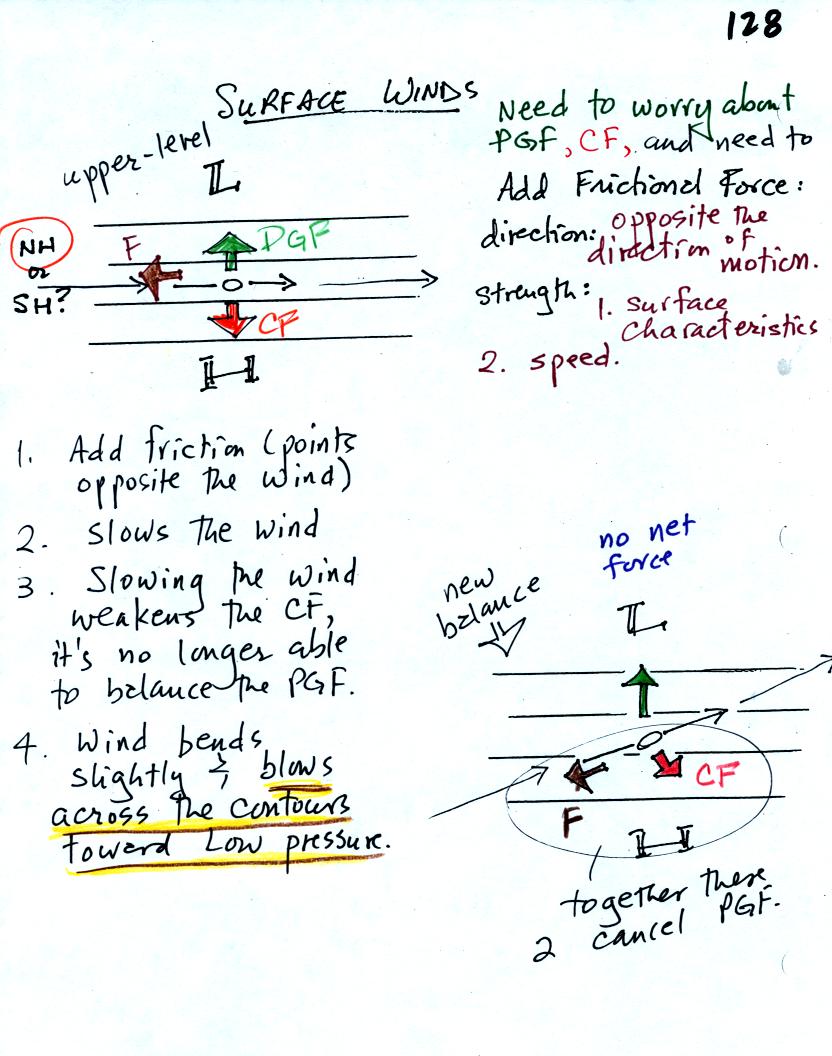 128
SURFACE WINDS
Need to worry about
PGF, CF, and need to
Add Frictional Force:
direction: opposite the
direction of
motion.
Strength: 1. surface
characteristics
2. speed.
upper-level
L
NH
or
SH?
F
PGF
CF
H
1. Add friction (points
opposite the wind)
2. Slows the wind
3. Slowing the wind
weakens the CF,
it's no longer able
to balance the PGF.
4. Wind bends
slightly & blows
across the contours
toward Low pressure.
no net
force
new
balance
L
CF
F
H
together these
2 cancel PGF.